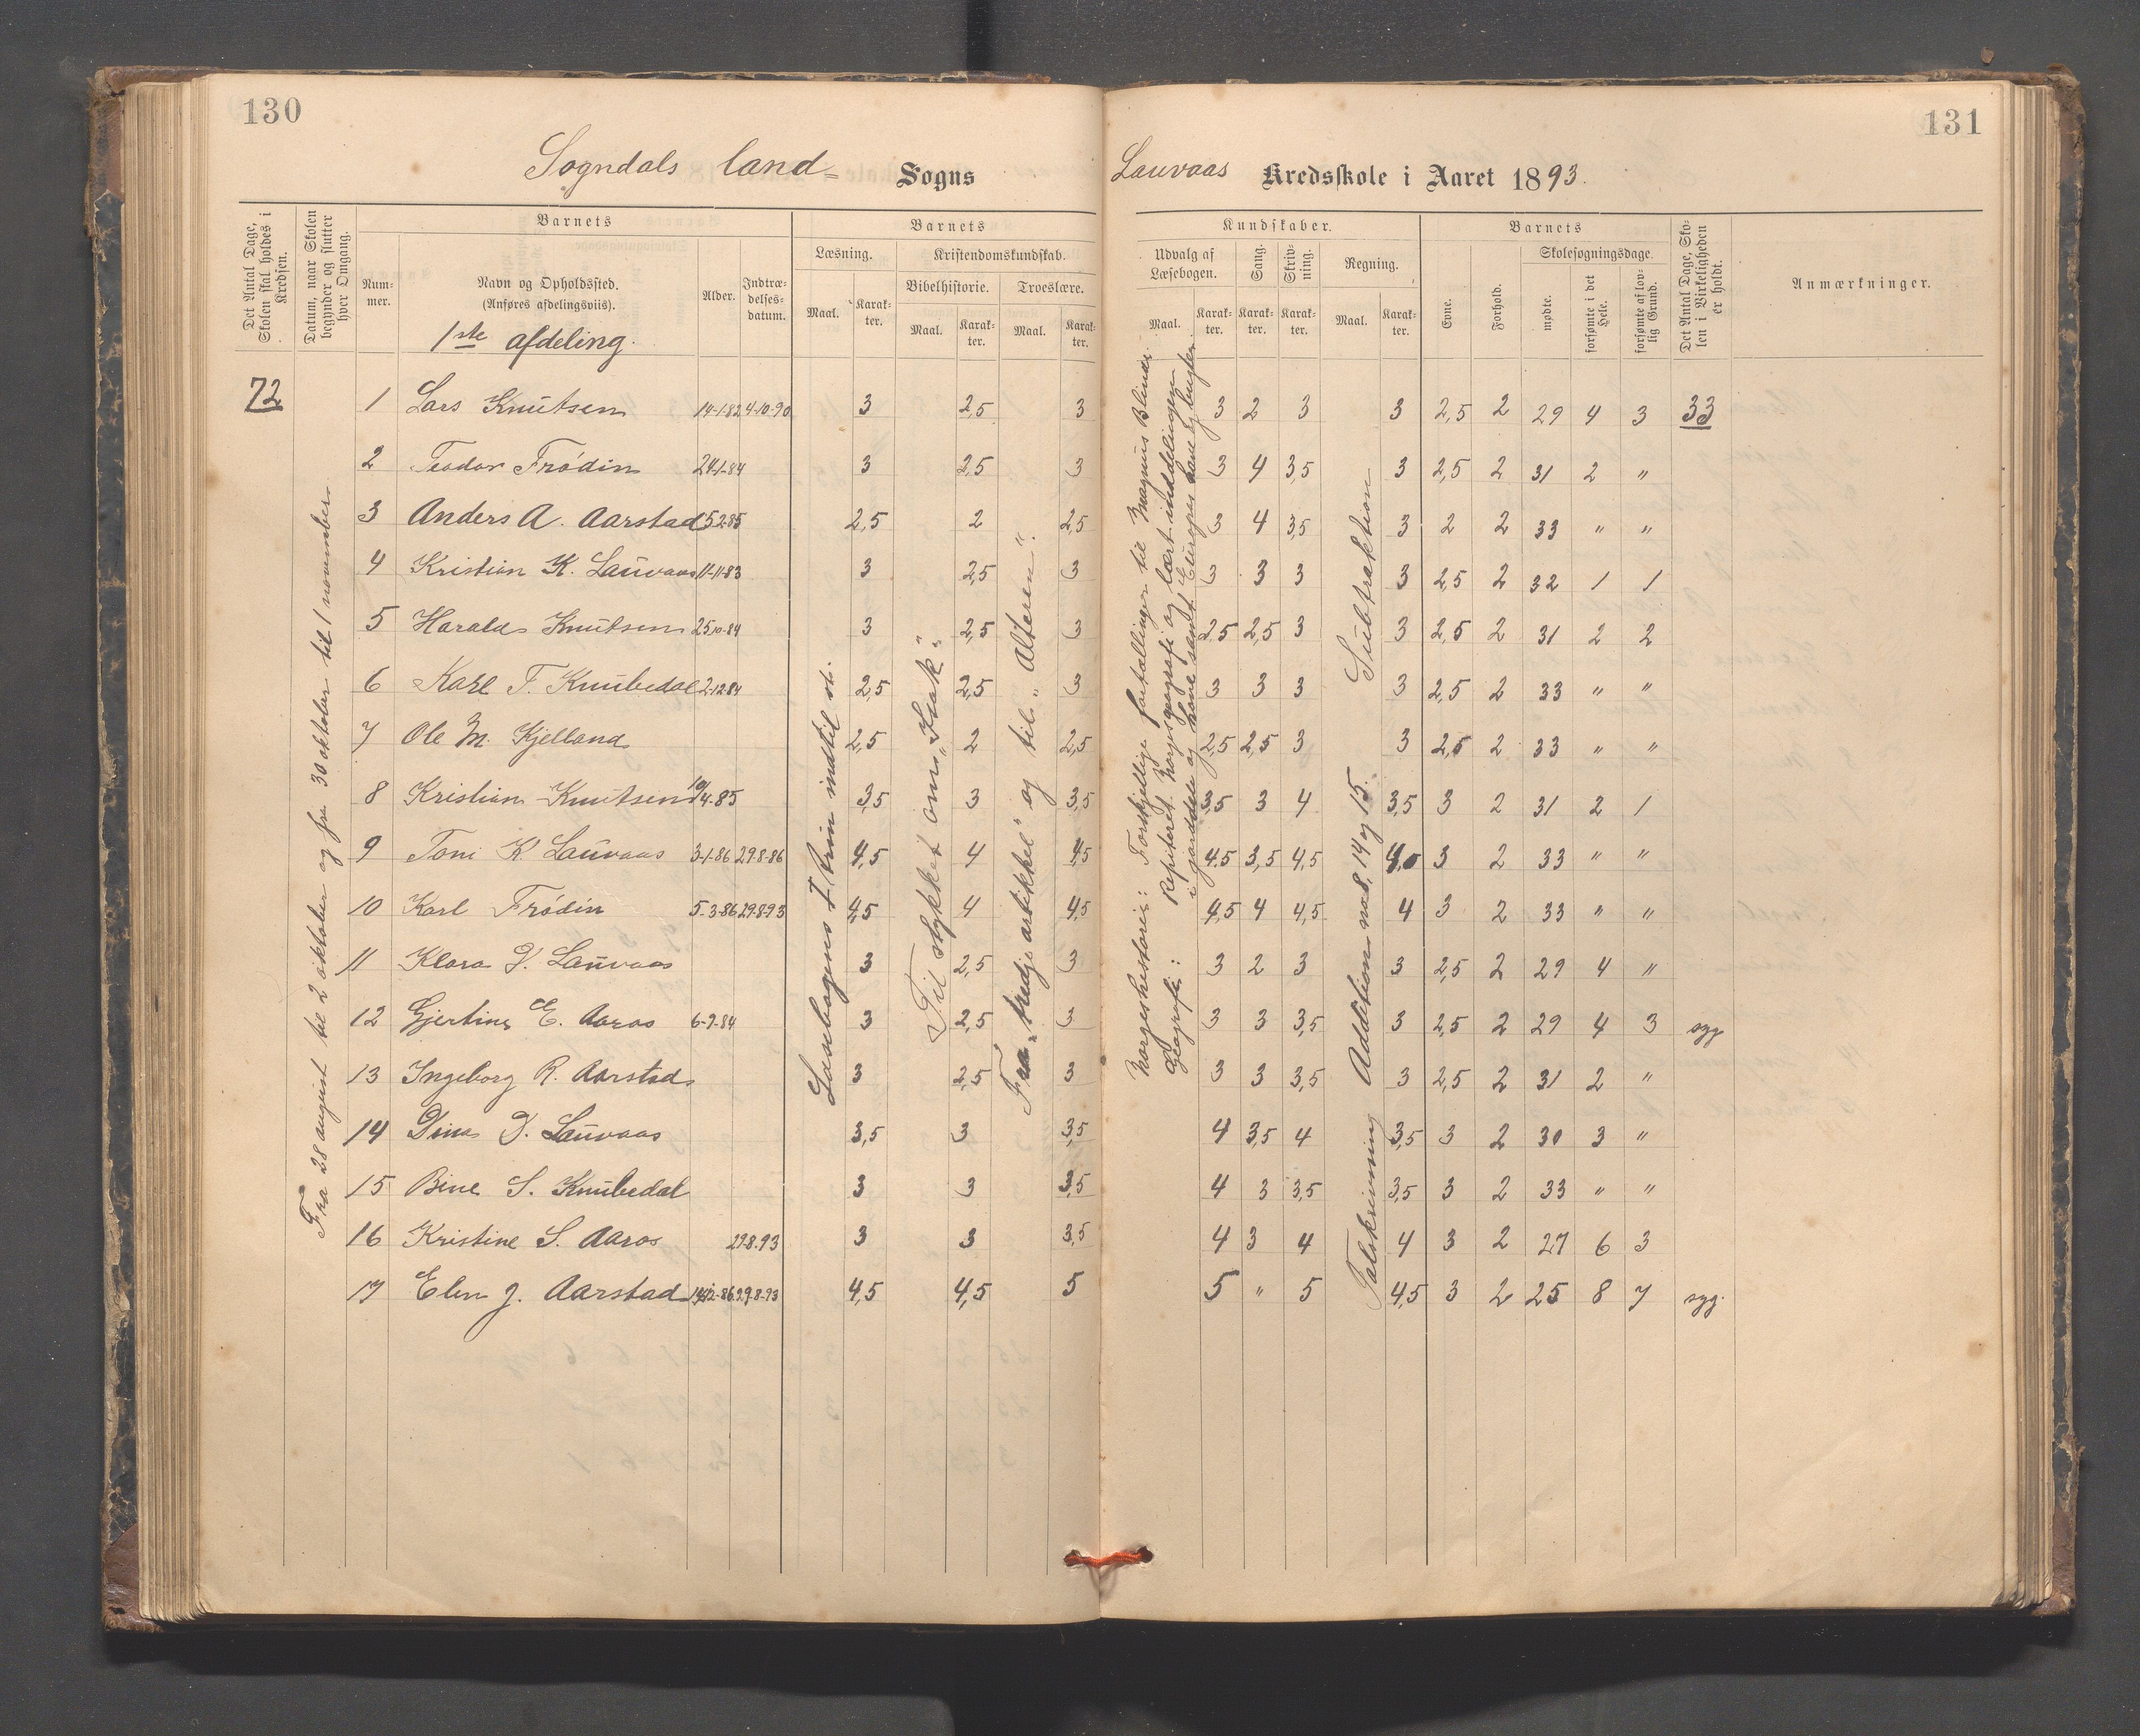 130
131
Sogndals land= Sogns
Lauvaas Kredsskole i Aaret 1893.
Det Antal Dage, Skolen skal holdes i Kredsen.
Datum, naar Skolen begynder og slutter hver Omgang.
Barnets
Nummer.
Navn og Opholdssted.
(Anføres afdelingsviis).
1ste afdeling.
Alder.
Indtrædelsesdatum.
Barnets
Læsning.
Maal.
Karakter.
Kristendomskundskab.
Bibelhistorie.
Maal.
Karakter.
Troeslære.
Maal.
Karakter.
Kundskaber.
Udvalg af Læsebogen.
Maal.
Karakter.
Sang.
Karakter.
Skrivning.
Karakter.
Regning.
Maal.
Karakter.
Barnets
Evne.
Forhold.
Skolesøgningsdage.
mødte.
forsømte i det Hele.
forsømte af lovlig Grund.
Det Antal Dage, Skolen i Virkeligheden er holdt.
Anmærkninger.
72
Fra 28 august til 2 oktober og fra 30 oktober til 1 november
Læsebogens I trin indtil
Til stykket om „Isak“
Fra „tredje artikkel“ og til „Alteren“.
Norgeshistorie: Forskjellige fortællinger til Magnus Blinde
Geografi: Repiteret Norgesgeografi og lært inddelingen
i jorddele og have samt Europas have og bugter
Talskrivning Addition no 8, 14 og 15. Subtraktion
1 Lars Knutsen 14-1-82 4-10-90 3 2,5 3 3 2 3 3 2,5 2 29 4 3 33
2 Teodor Frödin 24-1-84 3 2,5 3 3 4 3,5 3 2,5 2 31 2 "
3 Anders A. Aarstad 5-2-85 2,5 2 2,5 3 4 3,5 3 2 2 33 " "
4 Kristian K. Lauvaas 11-11-83 3 2,5 3 3 3 3 3 2,5 2 32 1 1
5 Harald Knutsen 25-10-84 3 2,5 3 2,5 2,5 3 3 2,5 2 31 2 2
6 Karl T. Knubedal 2-12-84 2,5 2,5 3 3 3 3 3 2,5 2 33 " "
7 Ole M. Kjelland 2,5 2 2,5 2,5 2,5 3 3 2,5 2 33 " "
8 Kristian Knutsen 10/4-85 3,5 3 3,5 3,5 3 4 3,5 3 2 31 2 1
9 Toni K Lauvaas 3-1-86 29-8-86 4,5 4 4,5 4,5 3,5 4,5 4,0 3 2 33 " "
10 Karl Frödin 5-3-86 29-8-93 4,5 4 4,5 4,5 4 4,5 4 3 2 33 " "
11 Klara J. Lauvaas 3 2,5 3 3 2 3 3 2,5 2 29 4 "
12 Gjertine E. Aaros 6-9-84 3 2,5 3 3 3 3,5 3 2,5 2 29 4 3 syg
13 Ingeborg R. Aarstad 3 2,5 3 3 3 3,5 3 2,5 2 31 2 "
14 Dina J. Lauvaas 3,5 3 3,5 4 3,5 4 3,5 3 2 30 3 "
15 Bine S. Knubedal 3 3 3,5 4 3 3,5 3,5 3 2 33 " "
16 Kristine S. Aaros 29.8.93 3 3 3,5 4 3 4 4 3 2 27 6 3
17 Elen J. Aarstad 29-8-93 4,5 4,5 5 5 " 5 4,5 3 2 25 8 7 syg.